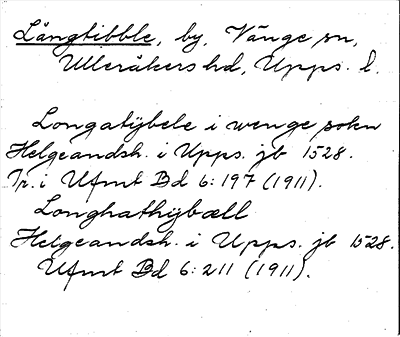 Långtibble, by, Vänge sn,
Ulleråkers hd, Upps. l.
Longatijbele i wenge sokn
Helgeandsh. i Upps. jb 1528.
Tr. i Ufmt Bd 6:197 (1911).
Longhathijbæll
Helgeandsh. i Upps. jb 1528.
Ufmt Bd 6:211 (1911).